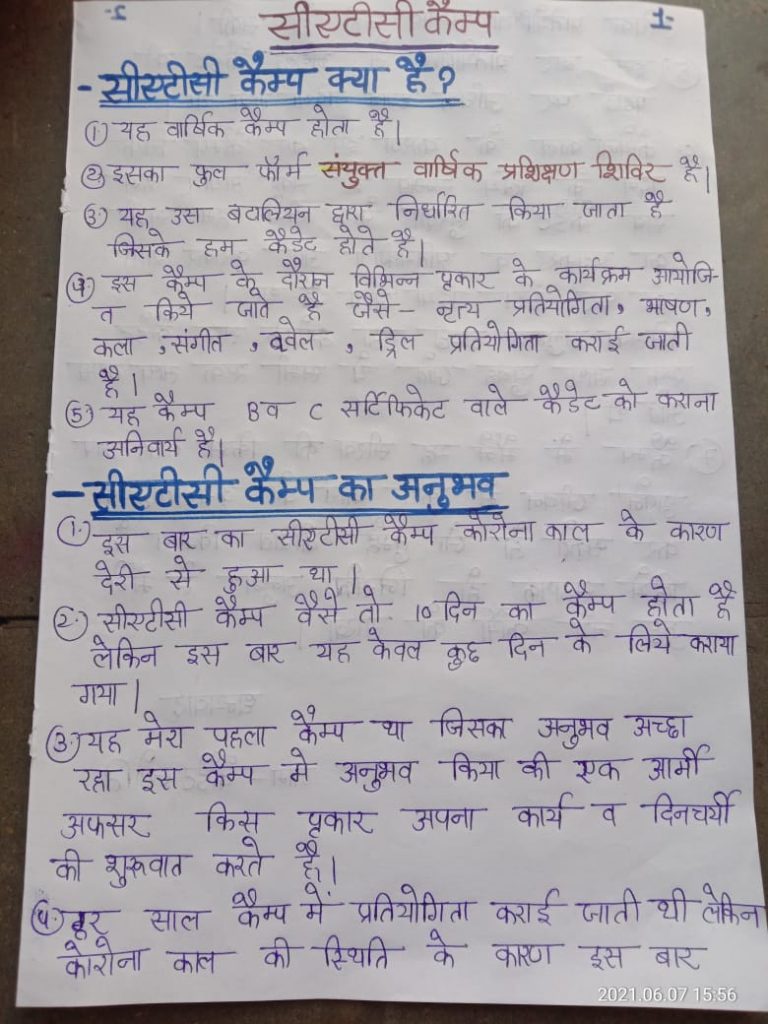 सीएटीसी कैम्प
1-
- सीएटीसी कैम्प क्या है?
① यह वार्षिक कैम्प होता है।
② इसका फुल फौर्म संयुक्त वार्षिक प्रशिक्षण शिविर है।
③ यह उस बटालियन द्वारा निर्धारित किया जाता है
जिसके हम कैडेट होते है।
④ इस कैम्प के दौरान विभिन्न प्रकार के कार्यक्रम आयोजि-
त किये जाते है जैसे - नृत्य प्रतियोगिता, भाषण,
कला, संगीत, ववेल, ड्रिल प्रतियोगिता कराई जाती
है।
⑤ यह कैम्प B व C सर्टिफिकेट वाले कैडेट को कराना
अनिवार्य है।
- सीएटीसी कैम्प का अनुभव
1. इस बार का सीएटीसी कैम्प कोरोना काल के कारण
देरी से हुआ था।
2. सीएटीसी कैम्प वैसे तो 10 दिन का कैम्प होता है
लेकिन इस बार यह केवल कुछ दिन के लिये कराया
गया।
3. यह मेरा पहला कैम्प था जिसका अनुभव अच्छा
रहा इस कैम्प मे अनुभव किया की एक आर्मी
अफसर किस प्रकार अपना कार्य व दिनचर्या
की शुरूवात करते है।
4. हर साल कैम्प में प्रतियोगिता कराई जाती थी लेकिन
कोरोना काल की स्थिति के कारण इस बार
2021.06.07 15:56